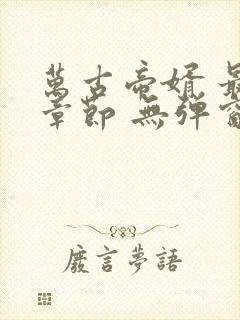 萬古帝婿 最
章節 無彈窗
廢言夢語